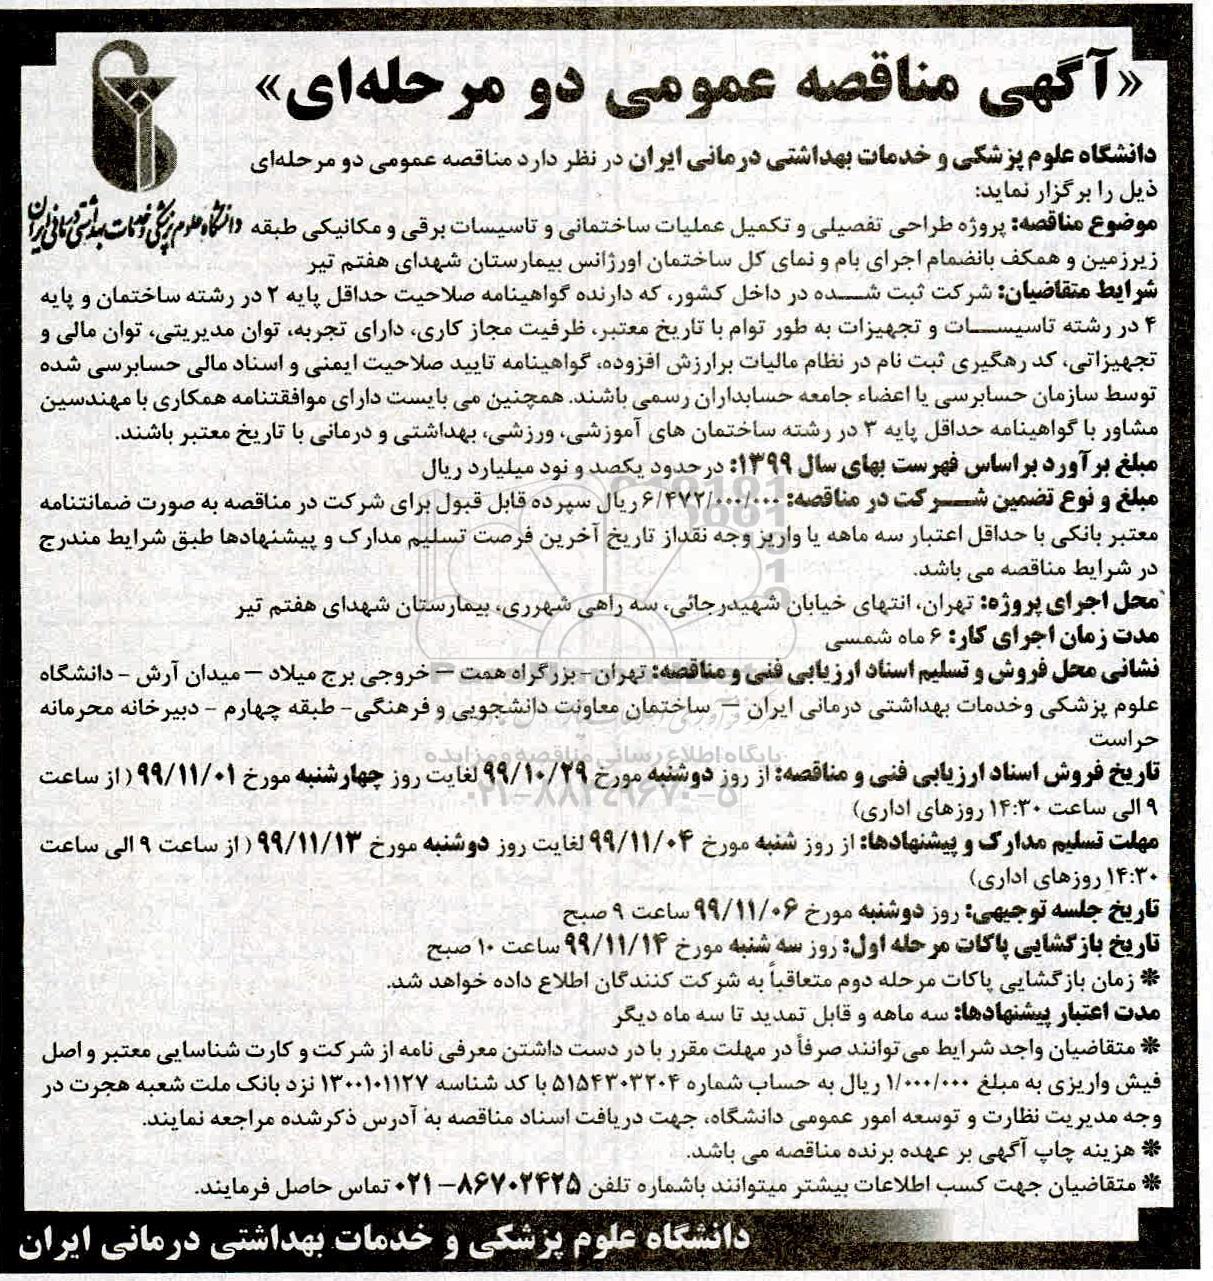 «آگهی مناقصه عمومی دو مرحله‌ای»
دانشگاه علوم پزشکی و خدمات بهداشتی درمانی ایران
دانشگاه علوم پزشکی و خدمات بهداشتی درمانی ایران در نظر دارد مناقصه عمومی دو مرحله‌ای
ذیل را برگزار نماید:
موضوع مناقصه: پروژه طراحی تفصیلی و تکمیل عملیات ساختمانی و تاسیسات برقی و مکانیکی طبقه
زیرزمین و همکف بانضمام اجرای بام و نمای کل ساختمان اورژانس بیمارستان شهدای هفتم تیر
شرایط متقاضیان: شرکت ثبت شده در داخل کشور، که دارنده گواهینامه صلاحیت حداقل پایه ۲ در رشته ساختمان و پایه
۴ در رشته تاسیسات و تجهیزات به طور توام با تاریخ معتبر، ظرفیت مجاز کاری، دارای تجربه، توان مدیریتی، توان مالی و
تجهیزاتی، کد رهگیری ثبت نام در نظام مالیات برارزش افزوده، گواهینامه تایید صلاحیت ایمنی و اسناد مالی حسابرسی شده
توسط سازمان حسابرسی یا اعضاء جامعه حسابداران رسمی باشند. همچنین می بایست دارای موافقتنامه همکاری با مهندسین
مشاور با گواهینامه حداقل پایه ۳ در رشته ساختمان های آموزشی، ورزشی، بهداشتی و درمانی با تاریخ معتبر باشند.
مبلغ برآورد براساس فهرست بهای سال ۱۳۹۹: درحدود یکصد و نود میلیارد ریال
مبلغ و نوع تضمین شرکت در مناقصه: ۶/۴۷۲/۰۰۰/۰۰۰ ریال سپرده قابل قبول برای شرکت در مناقصه به صورت ضمانتنامه
معتبر بانکی با حداقل اعتبار سه ماهه یا واریز وجه نقداز تاریخ آخرین فرصت تسلیم مدارک و پیشنهادها طبق شرایط مندرج
در شرایط مناقصه می باشد.
محل اجرای پروژه: تهران، انتهای خیابان شهیدرجائی، سه راهی شهرری، بیمارستان شهدای هفتم تیر
مدت زمان اجرای کار: ۶ ماه شمسی
نشانی محل فروش و تسلیم اسناد ارزیابی فنی و مناقصه: تهران- بزرگراه همت – خروجی برج میلاد – میدان آرش - دانشگاه
علوم پزشکی وخدمات بهداشتی درمانی ایران – ساختمان معاونت دانشجویی و فرهنگی- طبقه چهارم - دبیرخانه محرمانه
حراست
پایگاه اطلاع رسانی مناقصه و مزایده
تاریخ فروش اسناد ارزیابی فنی و مناقصه: از روز دوشنبه مورخ ۹۹/۱۰/۲۹ لغایت روز چهارشنبه مورخ ۹۹/۱۱/۰۱ ( از ساعت
۰۲۱-۸۸۳۴۹۶۷۰-۵
۹ الی ساعت ۱۴:۳۰ روزهای اداری)
مهلت تسلیم مدارک و پیشنهادها: از روز شنبه مورخ ۹۹/۱۱/۰۴ لغایت روز دوشنبه مورخ ۹۹/۱۱/۱۳ ( از ساعت ۹ الی ساعت
۱۴:۳۰ روزهای اداری)
تاریخ جلسه توجیهی: روز دوشنبه مورخ ۹۹/۱۱/۰۶ ساعت ۹ صبح
تاریخ بازگشایی پاکات مرحله اول: روز سه شنبه مورخ ۹۹/۱۱/۱۴ ساعت ۱۰ صبح
❊ زمان بازگشایی پاکات مرحله دوم متعاقباً به شرکت کنندگان اطلاع داده خواهد شد.
مدت اعتبار پیشنهادها: سه ماهه و قابل تمدید تا سه ماه دیگر
❊ متقاضیان واجد شرایط می‌توانند صرفاً در مهلت مقرر با در دست داشتن معرفی نامه از شرکت و کارت شناسایی معتبر و اصل
فیش واریزی به مبلغ ۱/۰۰۰/۰۰۰ ریال به حساب شماره ۵۱۵۴۳۰۳۲۰۴ با کد شناسه ۱۳۰۰۱۰۱۱۲۷ نزد بانک ملت شعبه هجرت در
وجه مدیریت نظارت و توسعه امور عمومی دانشگاه، جهت دریافت اسناد مناقصه به آدرس ذکرشده مراجعه نمایند.
❊ هزینه چاپ آگهی بر عهده برنده مناقصه می باشد.
❊ متقاضیان جهت کسب اطلاعات بیشتر میتوانند باشماره تلفن ۸۶۷۰۲۴۲۵-۰۲۱ تماس حاصل فرمایند.
دانشگاه علوم پزشکی و خدمات بهداشتی درمانی ایران